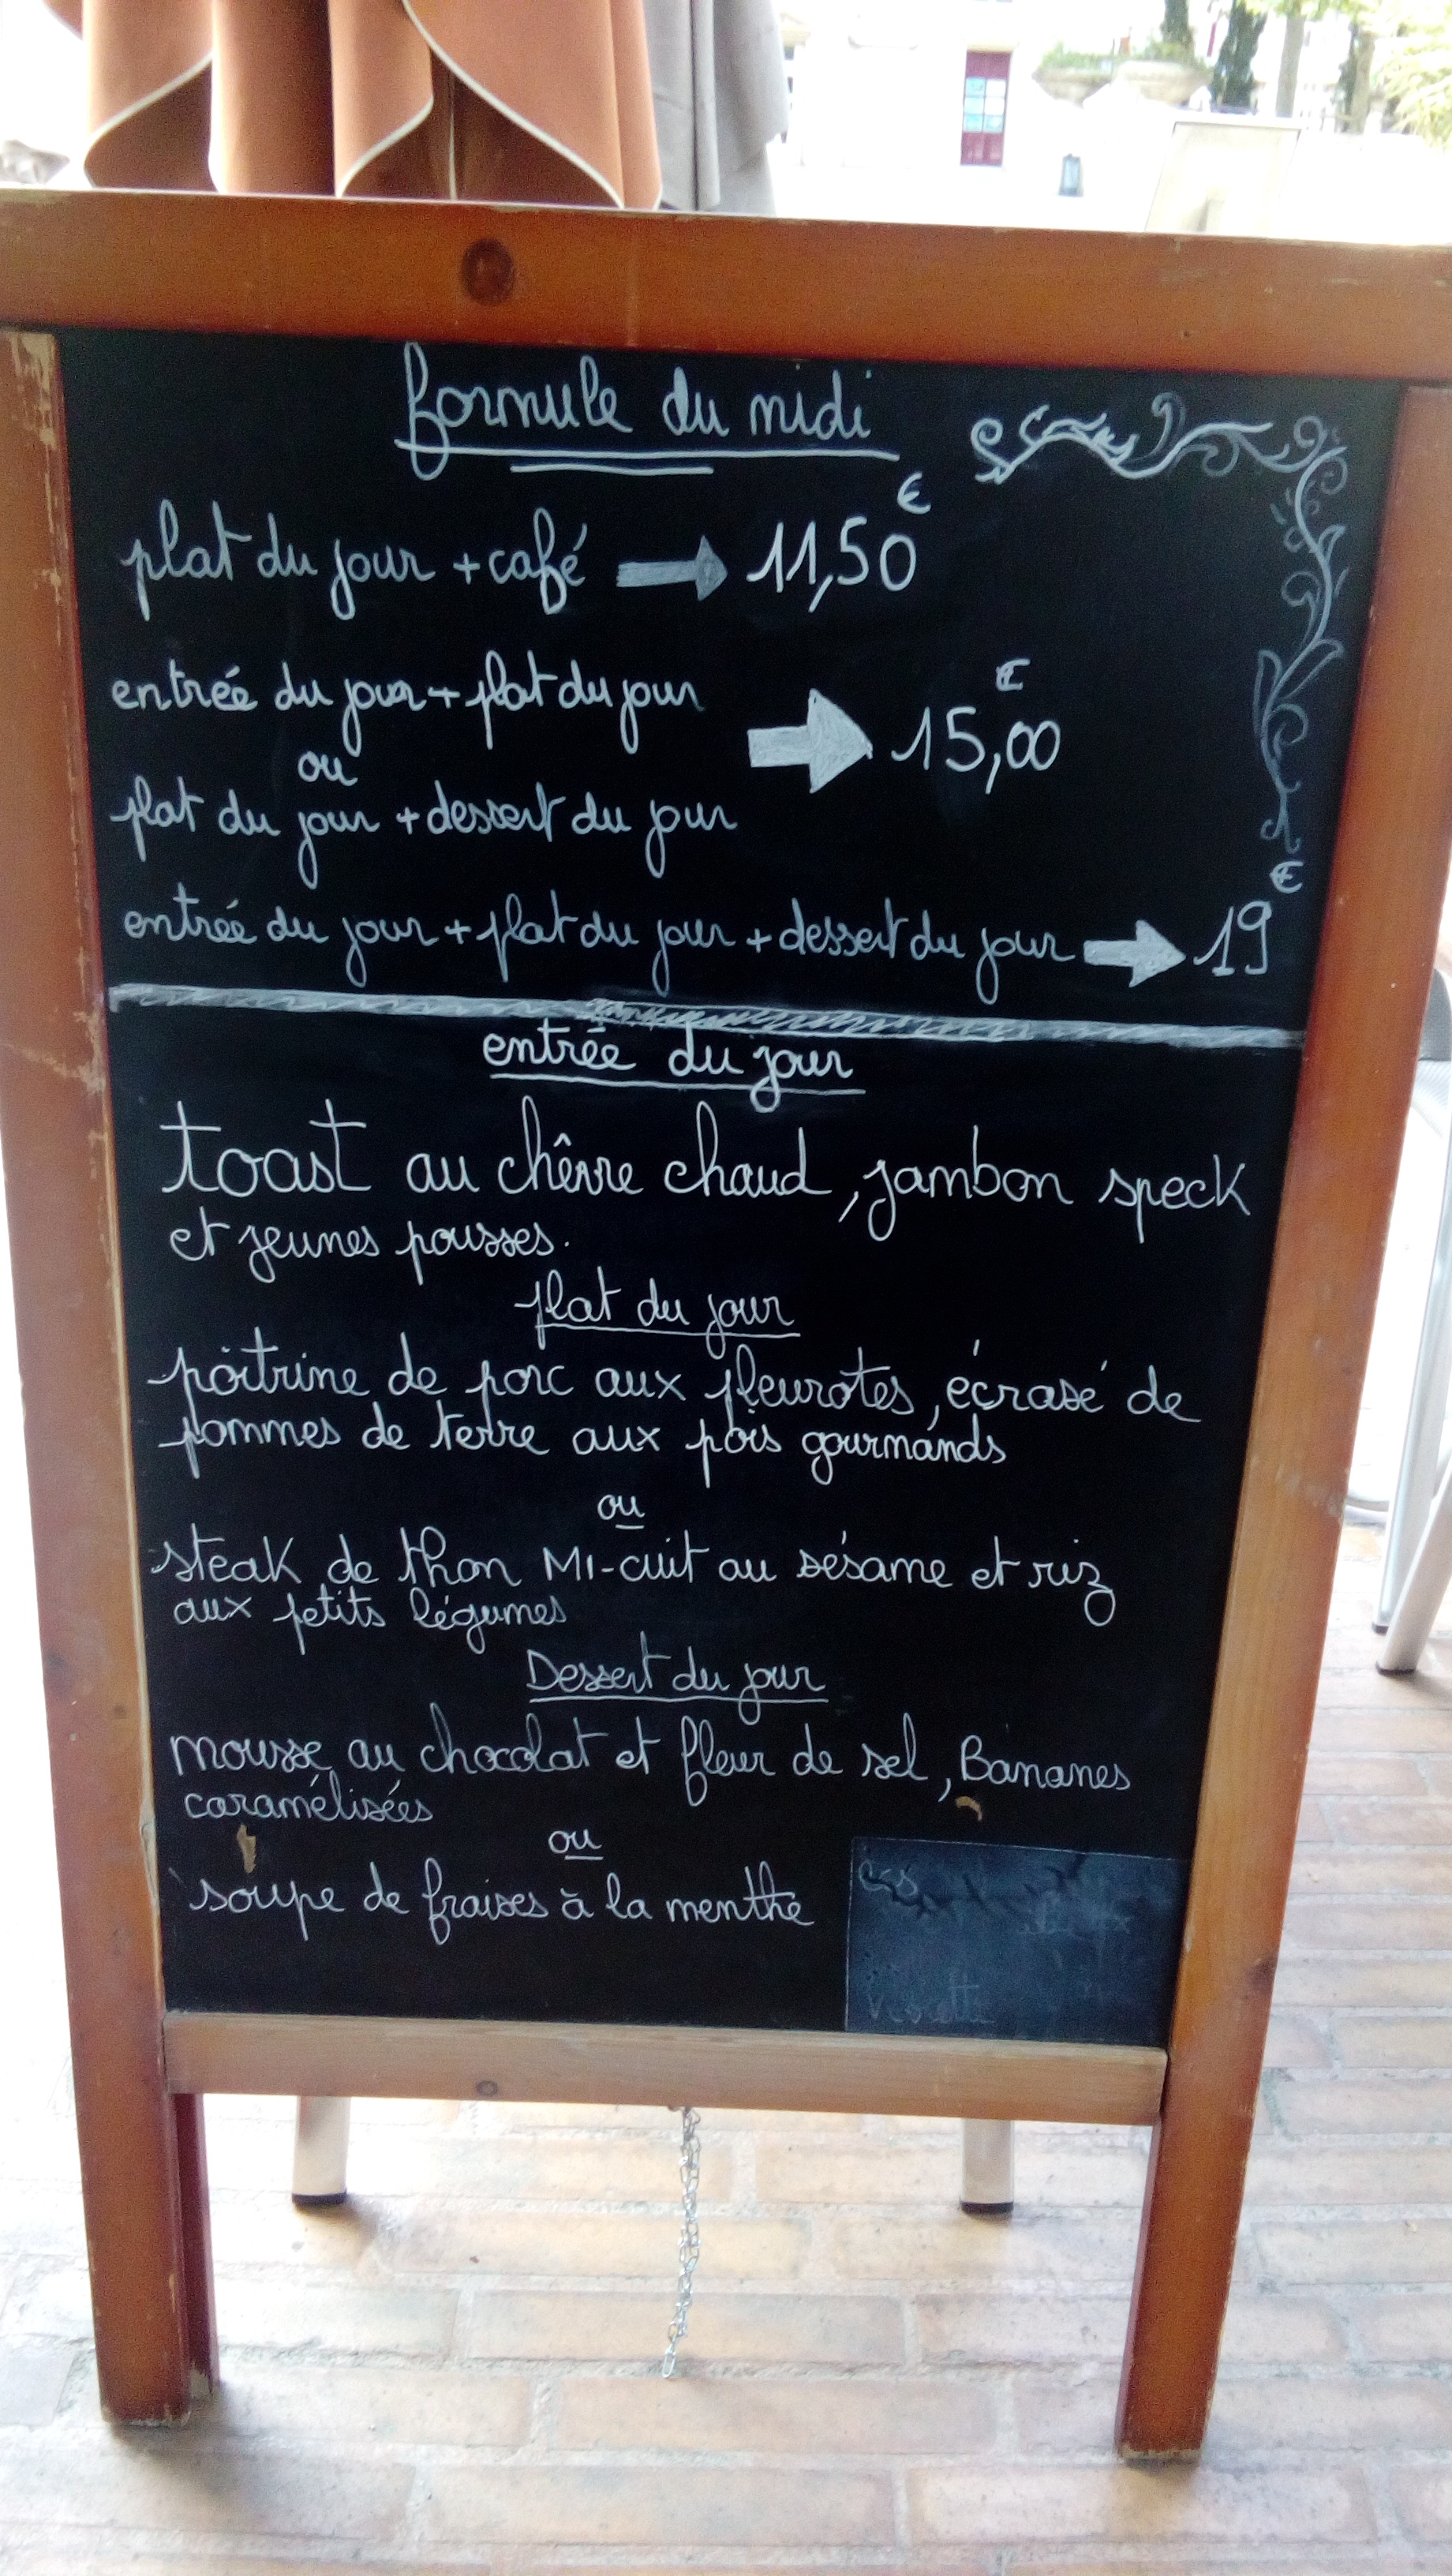 formule du midi
plat du jour + café → 11,50 €
entrée du jour + plat du jour
ou
→ 15,00 €
plat du jour + dessert du jour
entrée du jour + plat du jour + dessert du jour → 19 €
entrée du jour
toast au chêvre chaud, jambon speck
et jeunes pousses.
plat du jour
poitrine de porc aux pleurotes, écrasé de
pommes de terre aux pois gourmands
ou
steak de thon MI-cuit au sésame et riz
aux petits légumes
Dessert du jour
mousse au chocolat et fleur de sel, Bananes
caramélisées
ou
soupe de fraises à la menthe